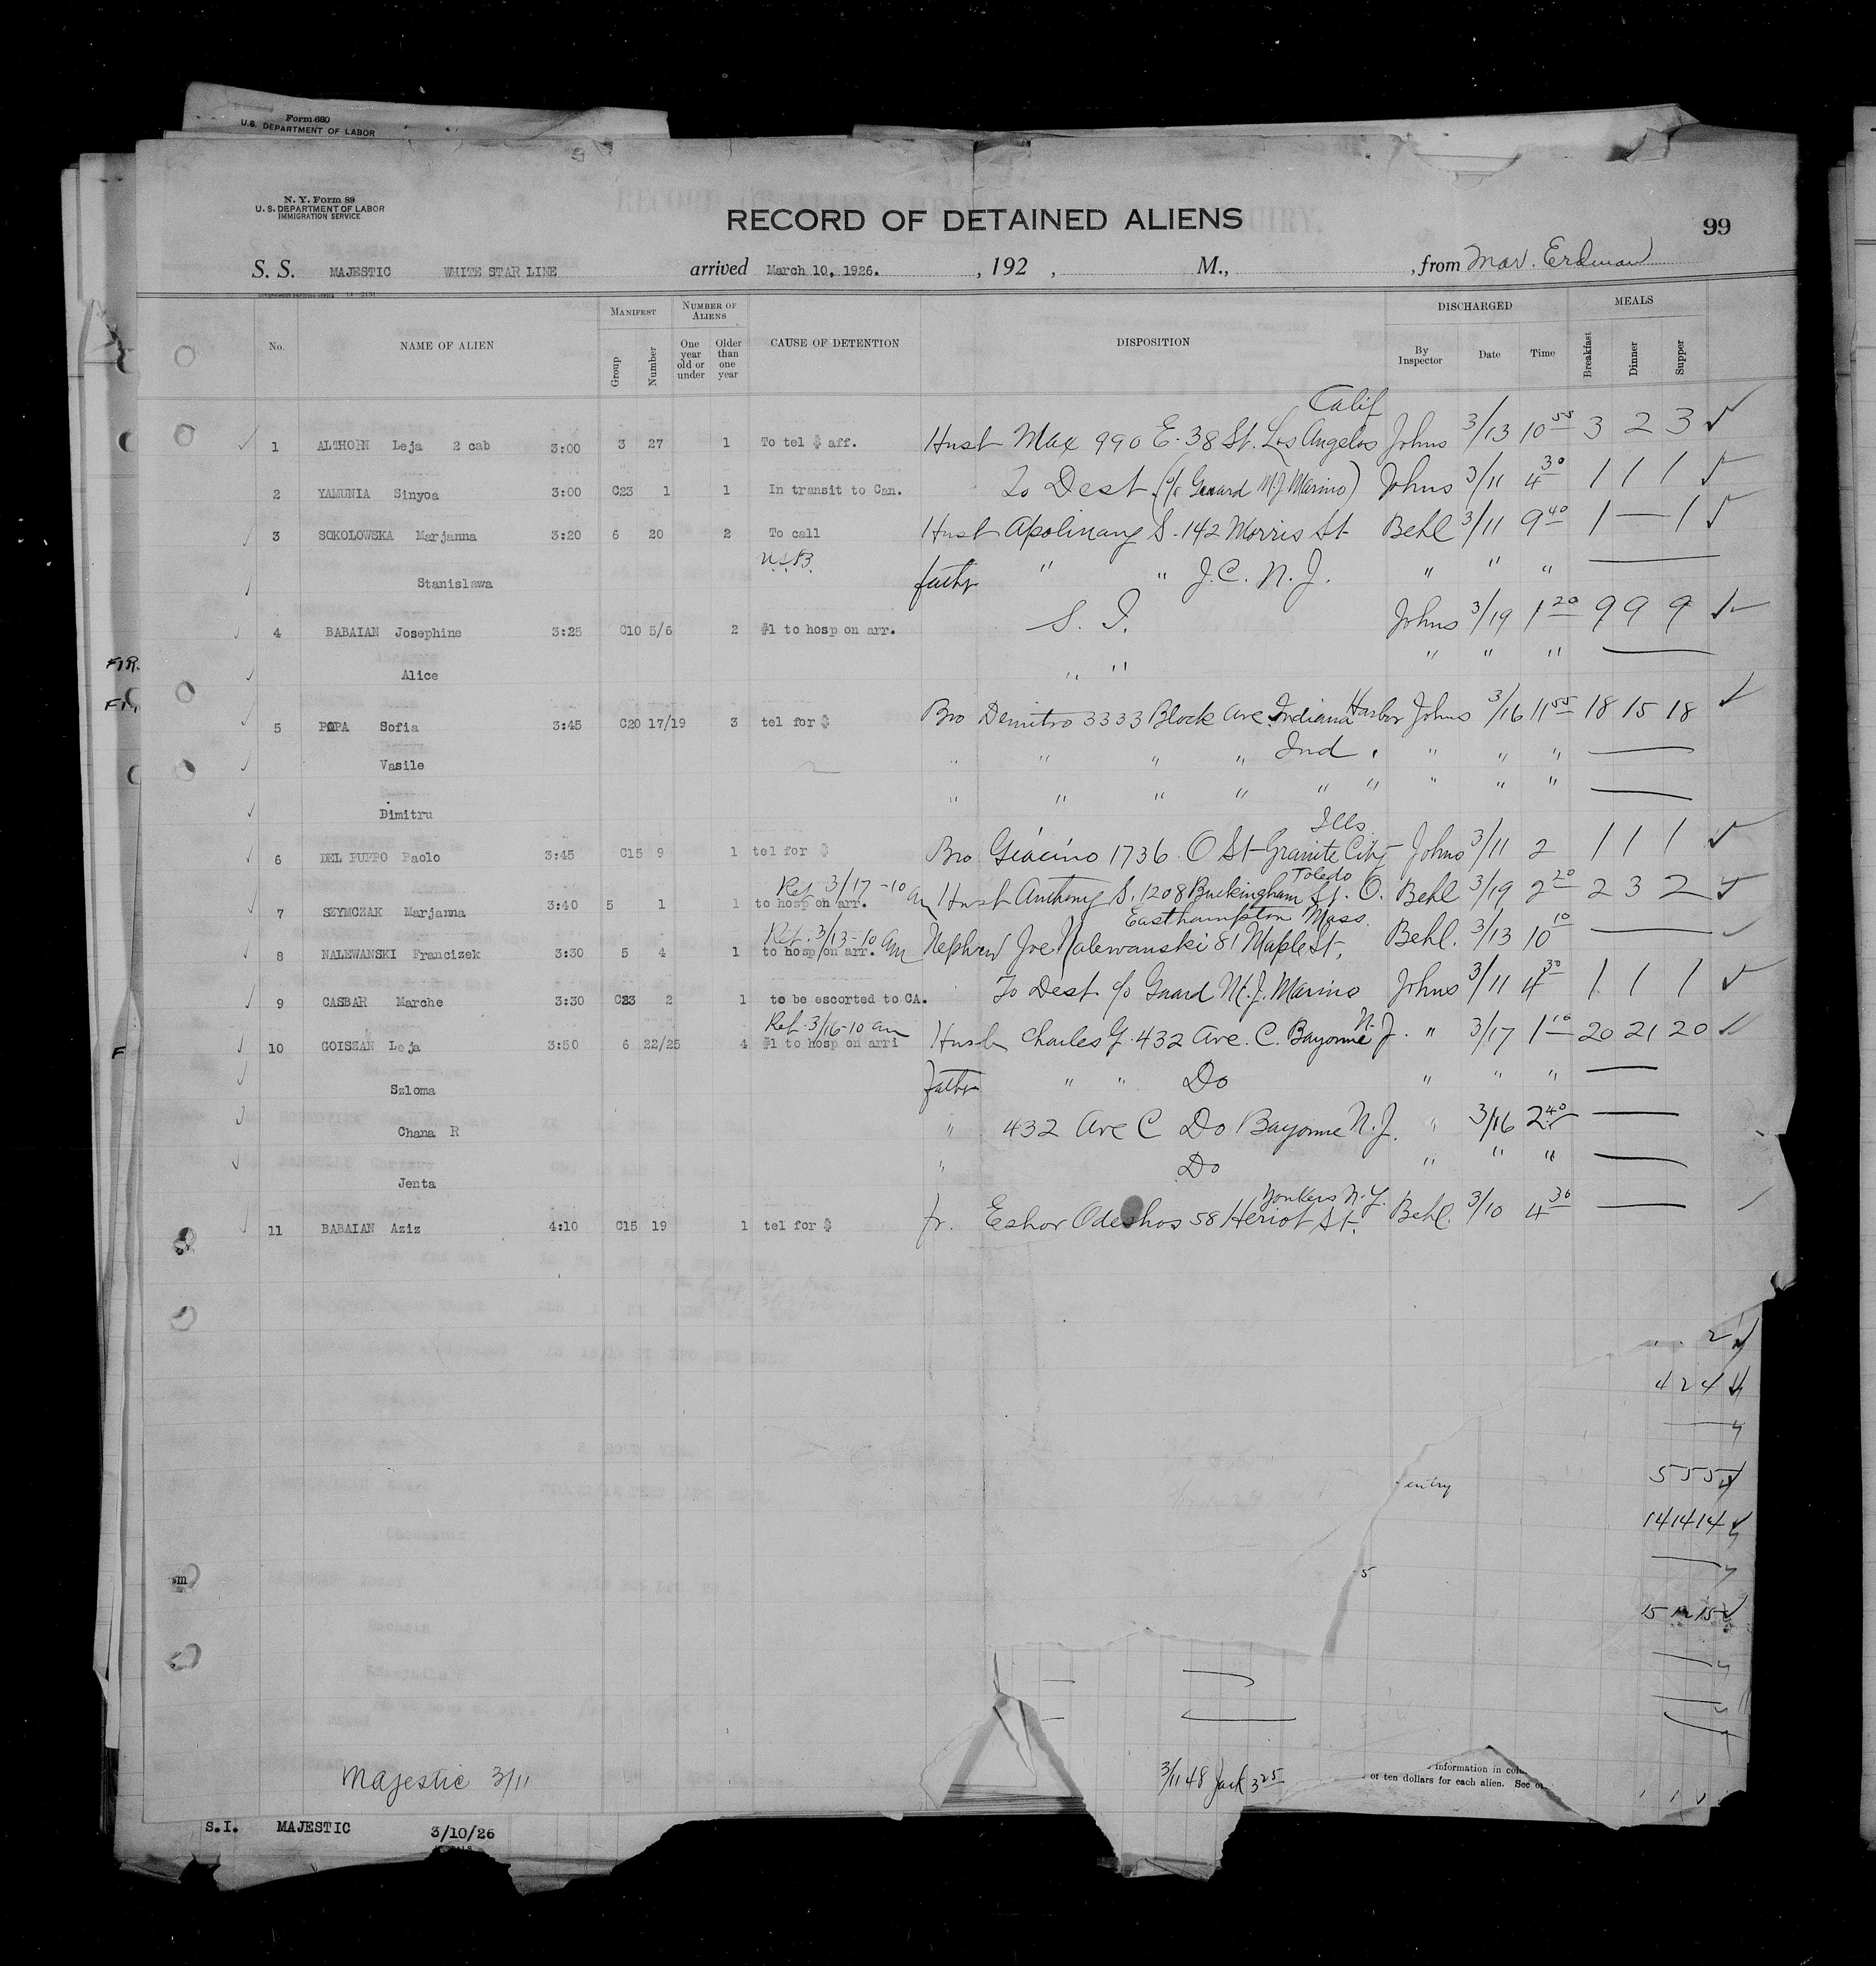 Form 680
U.S. DEPARTMENT OF LABOR
N. Y. Form 89
U. S. DEPARTMENT OF LABOR
IMMIGRATION SERVICE
RECORD OF DETAINED ALIENS
99
S. S. MAJESTIC WHITE STAR LINE arrived March 10, 1926. , 192 , M., , from Mar. Erdman
No. NAME OF ALIEN MANIFEST Group Number NUMBER OF ALIENS One year old or under Older than one year CAUSE OF DETENTION DISPOSITION DISCHARGED By Inspector Date Time MEALS Breakfast Dinner Supper
Calif
1 ALTHORN Leja 2 cab 3:00 3 27 1 To tel $ aff. Husb Max 990 E. 38 St. Los Angelos Johns 3/13 10 55 3 2 3 ✓
2 YAMUNIA Sinyoa 3:00 C23 1 1 In transit to Can. To Dest. (c/o Guard M.J. Marino) Johns 3/11 4 30 1 1 1 ✓
3 SOKOLOWSKA Marjanna 3:20 6 20 2 To call Husb Apolinary S. 142 Morris St Behl 3/11 9 40 1 — 1 ✓
U.S.B.
Stanislawa father " " J.C. N.J. " " " —
4 BABAIAN Josephine 3:25 C10 5/6 2 #1 to hosp on arr. S. I. Johns 3/19 1 20 9 9 9 ✓
Alice " " " " " —
5 POPA Sofia 3:45 C20 17/19 3 tel for $ Bro Demitro 3333 Block Ave. Indiana Harbor Johns 3/16 11 55 18 15 18 ✓
Vasile " " " " Ind. " " " —
Dimitru " " " " " " " " " —
Ills
6 DEL PUPPO Paolo 3:45 C15 9 1 tel for $ Bro Giacino 1736 O St Granite City Johns 3/11 2 1 1 1 ✓
Ret 3/17 - 10 am Toledo
7 SZYMCZAK Marjanna 3:40 5 1 1 to hosp on arr. Husb Anthony S. 1208 Buckingham St. O. Behl 3/19 2 20 2 3 2 ✓
Ret. 3/13-10 am Easthampton Mass.
8 NALEWANSKI Francizek 3:30 5 4 1 to hosp on arr. Nephew Joe Nalewanski 81 Maple St. Behl. 3/13 10 10 — ✓
9 CASBAR Marche 3:30 C23 2 1 to be escorted to CA. To Dest c/o Guard M.J. Marino Johns 3/11 4 30 1 1 1 ✓
Ret. 3/16-10 am
10 GOISZAN Leja 3:50 6 22/25 4 #1 to hosp on arri Husb Charles G. 432 Ave. C. Bayonne N.J. " 3/17 1 10 20 21 20 ✓
Szloma father " " Do " " " —
Chana R " 432 Ave C Do Bayonne N.J. " 3/16 2 40 —
Jenta " Do " " " —
Yonkers N.Y.
11 BABAIAN Aziz 4:10 C15 19 1 tel for $ fr. Eshor Odeshos 58 Heriot St. Behl. 3/10 4 30 — ✓
2 ✓
4 2 4 ✓
entry
5 5 5 ✓
14 14 14 ✓
5
15 12 15 ✓
information in colu
of ten dollars for each alien. See
Majestic 3/11
3/11 48 Jack 3 25
S.I. MAJESTIC 3/10/26